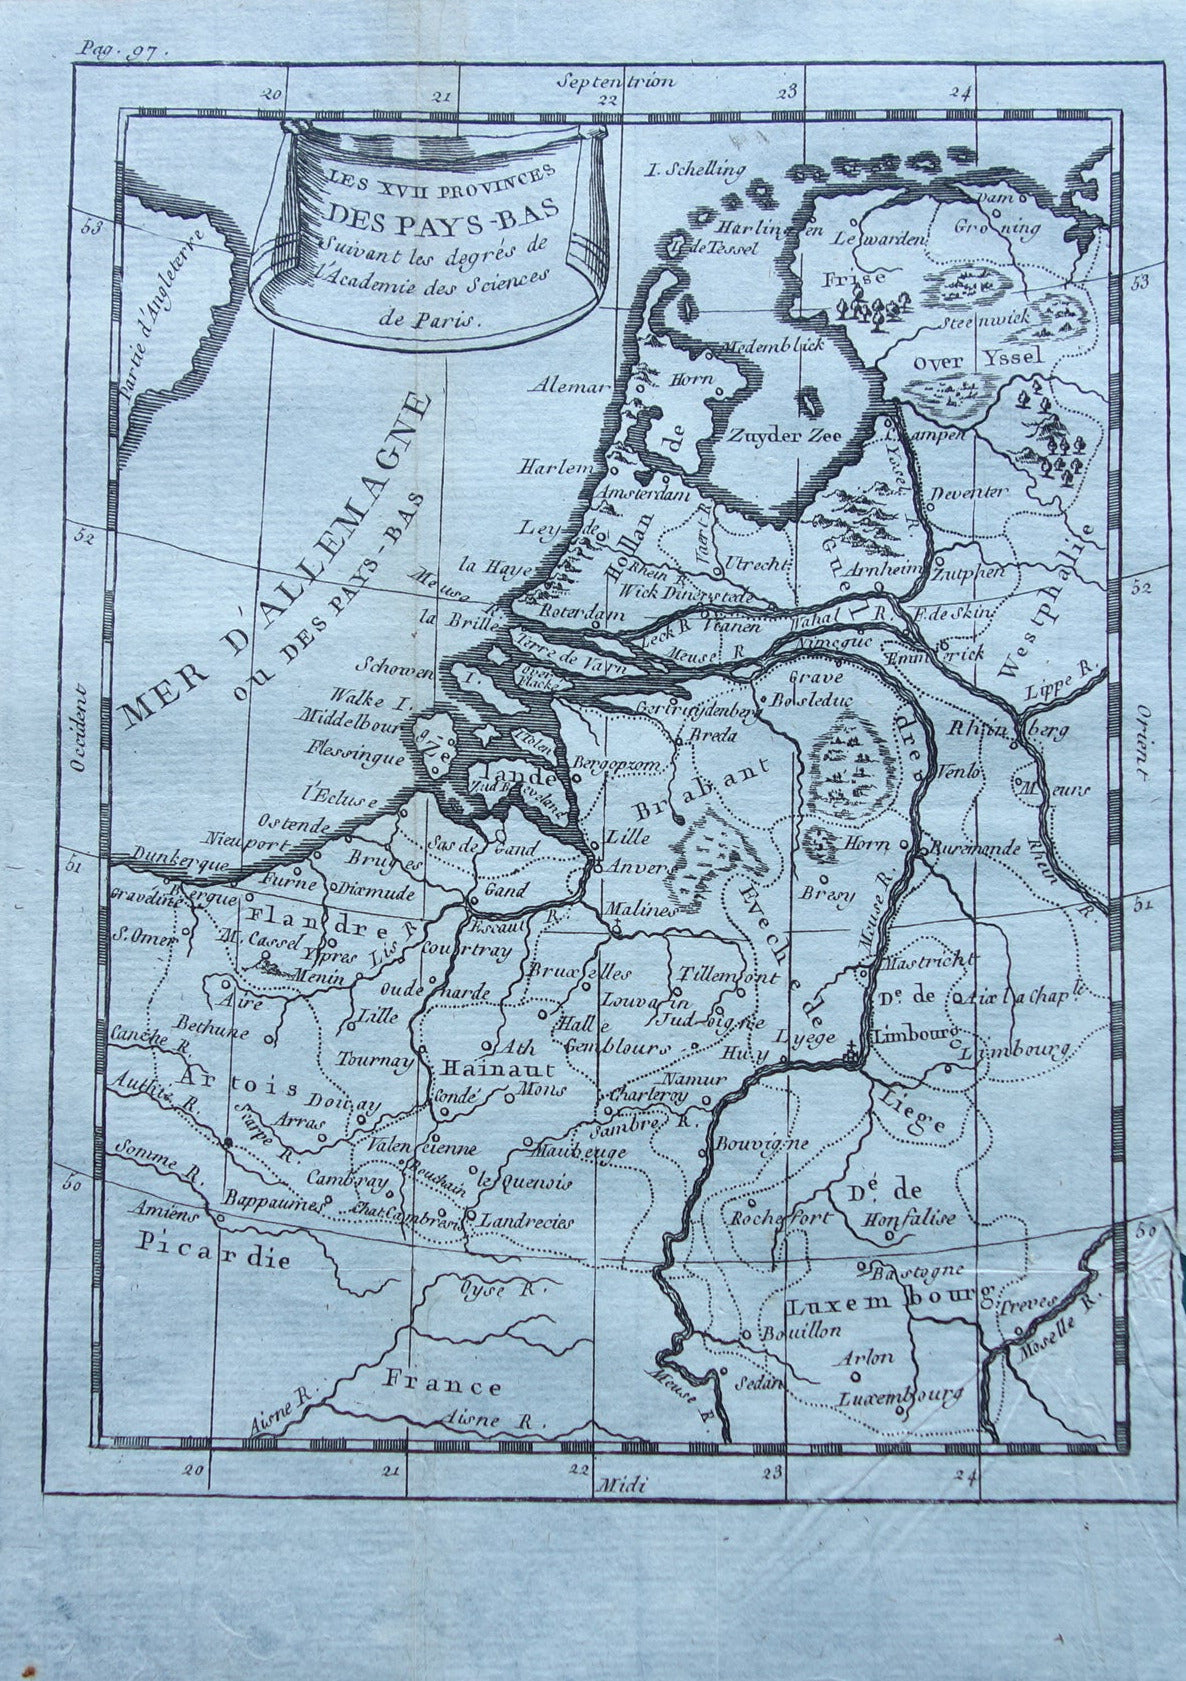 Pag. 97.
Septentrion
20
21
22
23
24
LES XVII PROVINCES
DES PAYS-BAS
Suivant les degrés de
l'Academie des Sciences
de Paris.
53
Partie d'Angleterre
MER D'ALLEMAGNE
OU DES PAYS-BAS
I. Schelling
Dam
Groning
Harlingen
Lewarden
I. de Tessel
Frise
53
Steenwick
Medemblick
Over Yssel
Alemar
Horn
Zuyder Zee
Campen
Harlem
Yssel R.
Amsterdam
Deventer
52
Leyde
Hollande
Vaert R.
Utrecht
Gueldre
Westphalie
la Haye
Rhein R.
Arnheim
Zutphen
52
Meuse R.
Wick Dinerstede
Roterdam
la Brille
Leck R.
Vianen
Wahal R.
F. de Skin
Meuse R.
Nimegue
Emmerick
Schowen I.
Terre de Varn
Over Flacke
Grave
Lippe R.
Walke I.
Gertruijdenberg
Bosleduc
Middelbour
Breda
Rhinberg
Occident
Orient
Flessingue
I Tolen
Zelande
Bergopzom
Brabant
Venlo
Meurs
l'Ecluse
Zud Beveland
Ostende
Lille
Nieuport
Sas de Gand
Horn
Ruremonde
51
Dunkerque
Bruges
Anvers
Rhein R.
Furne
Dixmude
Gand
Bresy
Graveline
Bergue
Malines
51
Flandre
Escaut R.
Eveche de Lyege
Meuse R.
S. Omer
M. Cassel
Ypres
Lis R.
Courtray
Menin
Bruxelles
Tillemont
Mastricht
Aire
Oudenharde
Louvain
De. de
Limbourg
Aix la Chaple
Lille
Halle
Judoigne
Bethune
Canche R.
Tournay
Ath
Gemblours
Huy
Limbourg
Hainaut
Artois
Namur
Authie R.
Douay
Condé
Mons
Charleroy
Liege
Scarpe R.
Arras
Sambre R.
Valencienne
Maubeuge
Bouvigne
Somme R.
Bouchain
50
Cambray
le Quenois
De. de
Luxembourg
Bappaumes
Chat. Cambresis
Landrecies
Rochefort
Honfalise
Amiens
50
Picardie
Bastogne
Oyse R.
Treves
Bouillon
Moselle R.
Arlon
France
Meuse R.
Sedan
Luxembourg
Aisne R.
Aisne R.
20
21
22
23
24
Midi